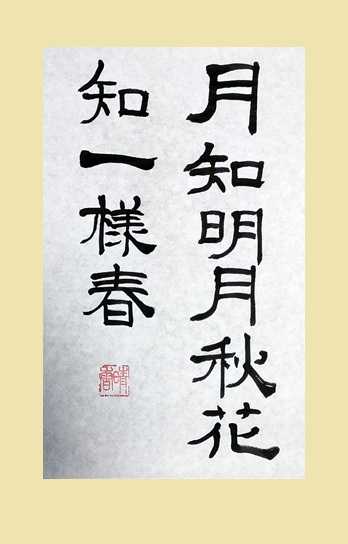 月知明月秋花
知一樣春